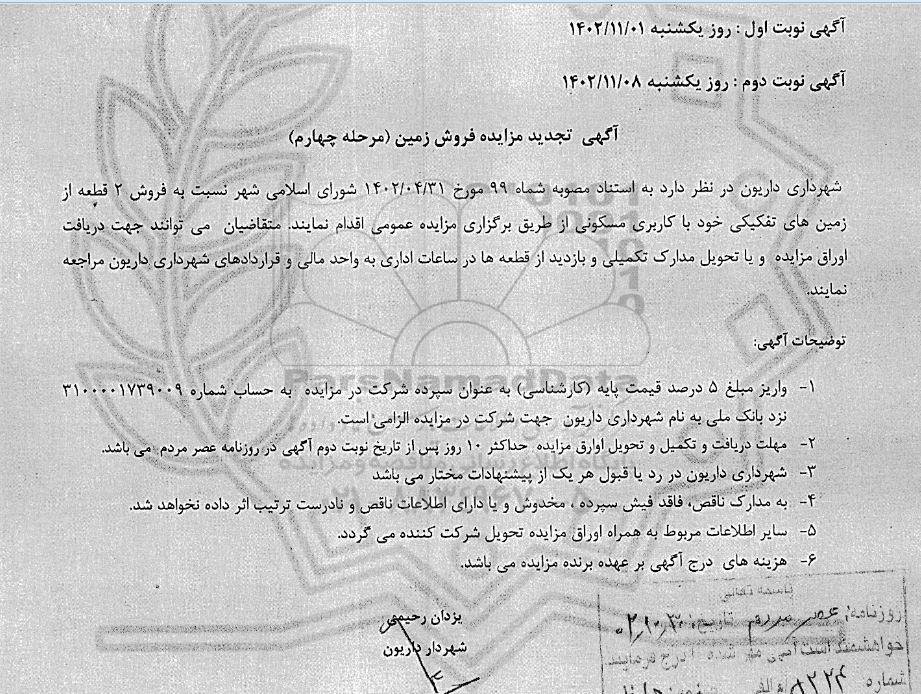 آگهی نوبت اول : روز یکشنبه ۱۴۰۲/۱۱/۰۱
آگهی نوبت دوم : روز یکشنبه ۱۴۰۲/۱۱/۰۸
آگهی تجدید مزایده فروش زمین (مرحله چهارم)
شهرداری داریون در نظر دارد به استناد مصوبه شماه ۹۹ مورخ ۱۴۰۲/۰۴/۳۱ شورای اسلامی شهر نسبت به فروش ۲ قطعه از
زمین های تفکیکی خود با کاربری مسکونی از طریق برگزاری مزایده عمومی اقدام نمایند. متقاضیان می توانند جهت دریافت
اوراق مزایده و یا تحویل مدارک تکمیلی و بازدید از قطعه ها در ساعات اداری به واحد مالی و قراردادهای شهرداری داریون مراجعه
نمایند.
توضیحات آگهی:
۱- واریز مبلغ ۵ درصد قیمت پایه (کارشناسی) به عنوان سپرده شرکت در مزایده به حساب شماره ۳۱۰۰۰۰۱۷۳۹۰۰۹
نزد بانک ملی به نام شهرداری داریون جهت شرکت در مزایده الزامی است.
۲- مهلت دریافت و تکمیل و تحویل اوارق مزایده حداکثر ۱۰ روز پس از تاریخ نوبت دوم آگهی در روزنامه عصر مردم می باشد.
۳- شهرداری داریون در رد یا قبول هر یک از پیشنهادات مختار می باشد
۴- به مدارک ناقص، فاقد فیش سپرده ، مخدوش و یا دارای اطلاعات ناقص و نادرست ترتیب اثر داده نخواهد شد.
۵- سایر اطلاعات مربوط به همراه اوراق مزایده تحویل شرکت کننده می گردد.
۶- هزینه های درج آگهی بر عهده برنده مزایده می باشد.
یزدان رحیمی
شهردار داریون
ParsNamadData
باسمه تعالی
روزنامه: عصر مردم تاریخ:
خواهشمند است آگهی مهر شده را درج فرمایید
شماره